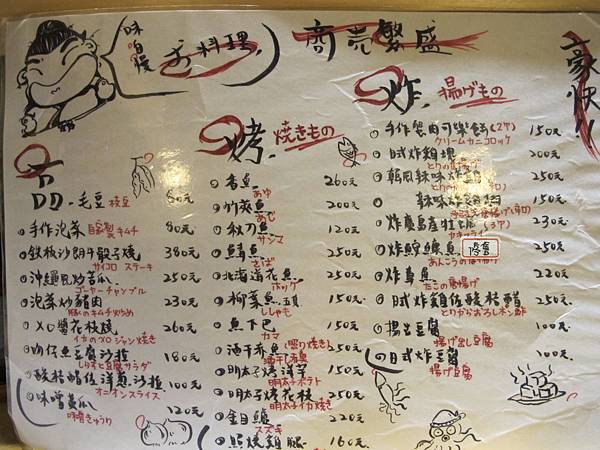 味噌慢
お料理
商売繁盛
豪快!!
一品
毛豆 枝豆 80元
手作泡菜 自家製キムチ 80元
鉄板沙朗牛骰子燒 380元
サイコロ ステーキ
沖繩風炒苦瓜 250元
ゴーヤーチャンプル
泡菜炒豬肉 230元
豚のキムチ炒め
XO醬花枝燒 260元
イカのXOジャン焼き
吻仔魚豆腐沙拉 180元
しらすと豆腐サラダ
酸桔醋佐洋蔥沙拉 100元
オニオンスライス
味噌黃瓜 120元
味噌きゅうり
烤 焼きもの
香魚 260元
あゆ
竹筴魚 200元
あじ
秋刀魚 120元
サンマ
鯖魚 250元
さば
北海道花魚 250元
ホッケ
柳葉魚 五頭 150元
ししゃも
魚下巴 150元
カマ
油干秀魚 (照り焼き) 350元
明太子烤洋芋 150元
明太ポテト
明太子烤花枝 250元
明太イカ焼き
金目鱸 220元
スズキ
照燒雞腿 160元
炸 揚げもの
手作蟹肉可樂餅(2ケ) 150元
クリームカニコロッケ
日式炸雞塊 200元
とりの唐揚げ
韓風辣味炸雞 250元
辣味炸雞翅 150元
炸廣島產牡蠣 (3ア) 230元
カキフライ
炸鮟鱇魚 售完 250元
あんこうの唐揚げ
炸章魚 220元
たこの唐揚げ
日式炸雞佐酸桔醋 250元
とりからおろしポン酢
揚出豆腐 100元
揚げ出し豆腐
日式炸豆腐 100元
揚げ豆腐